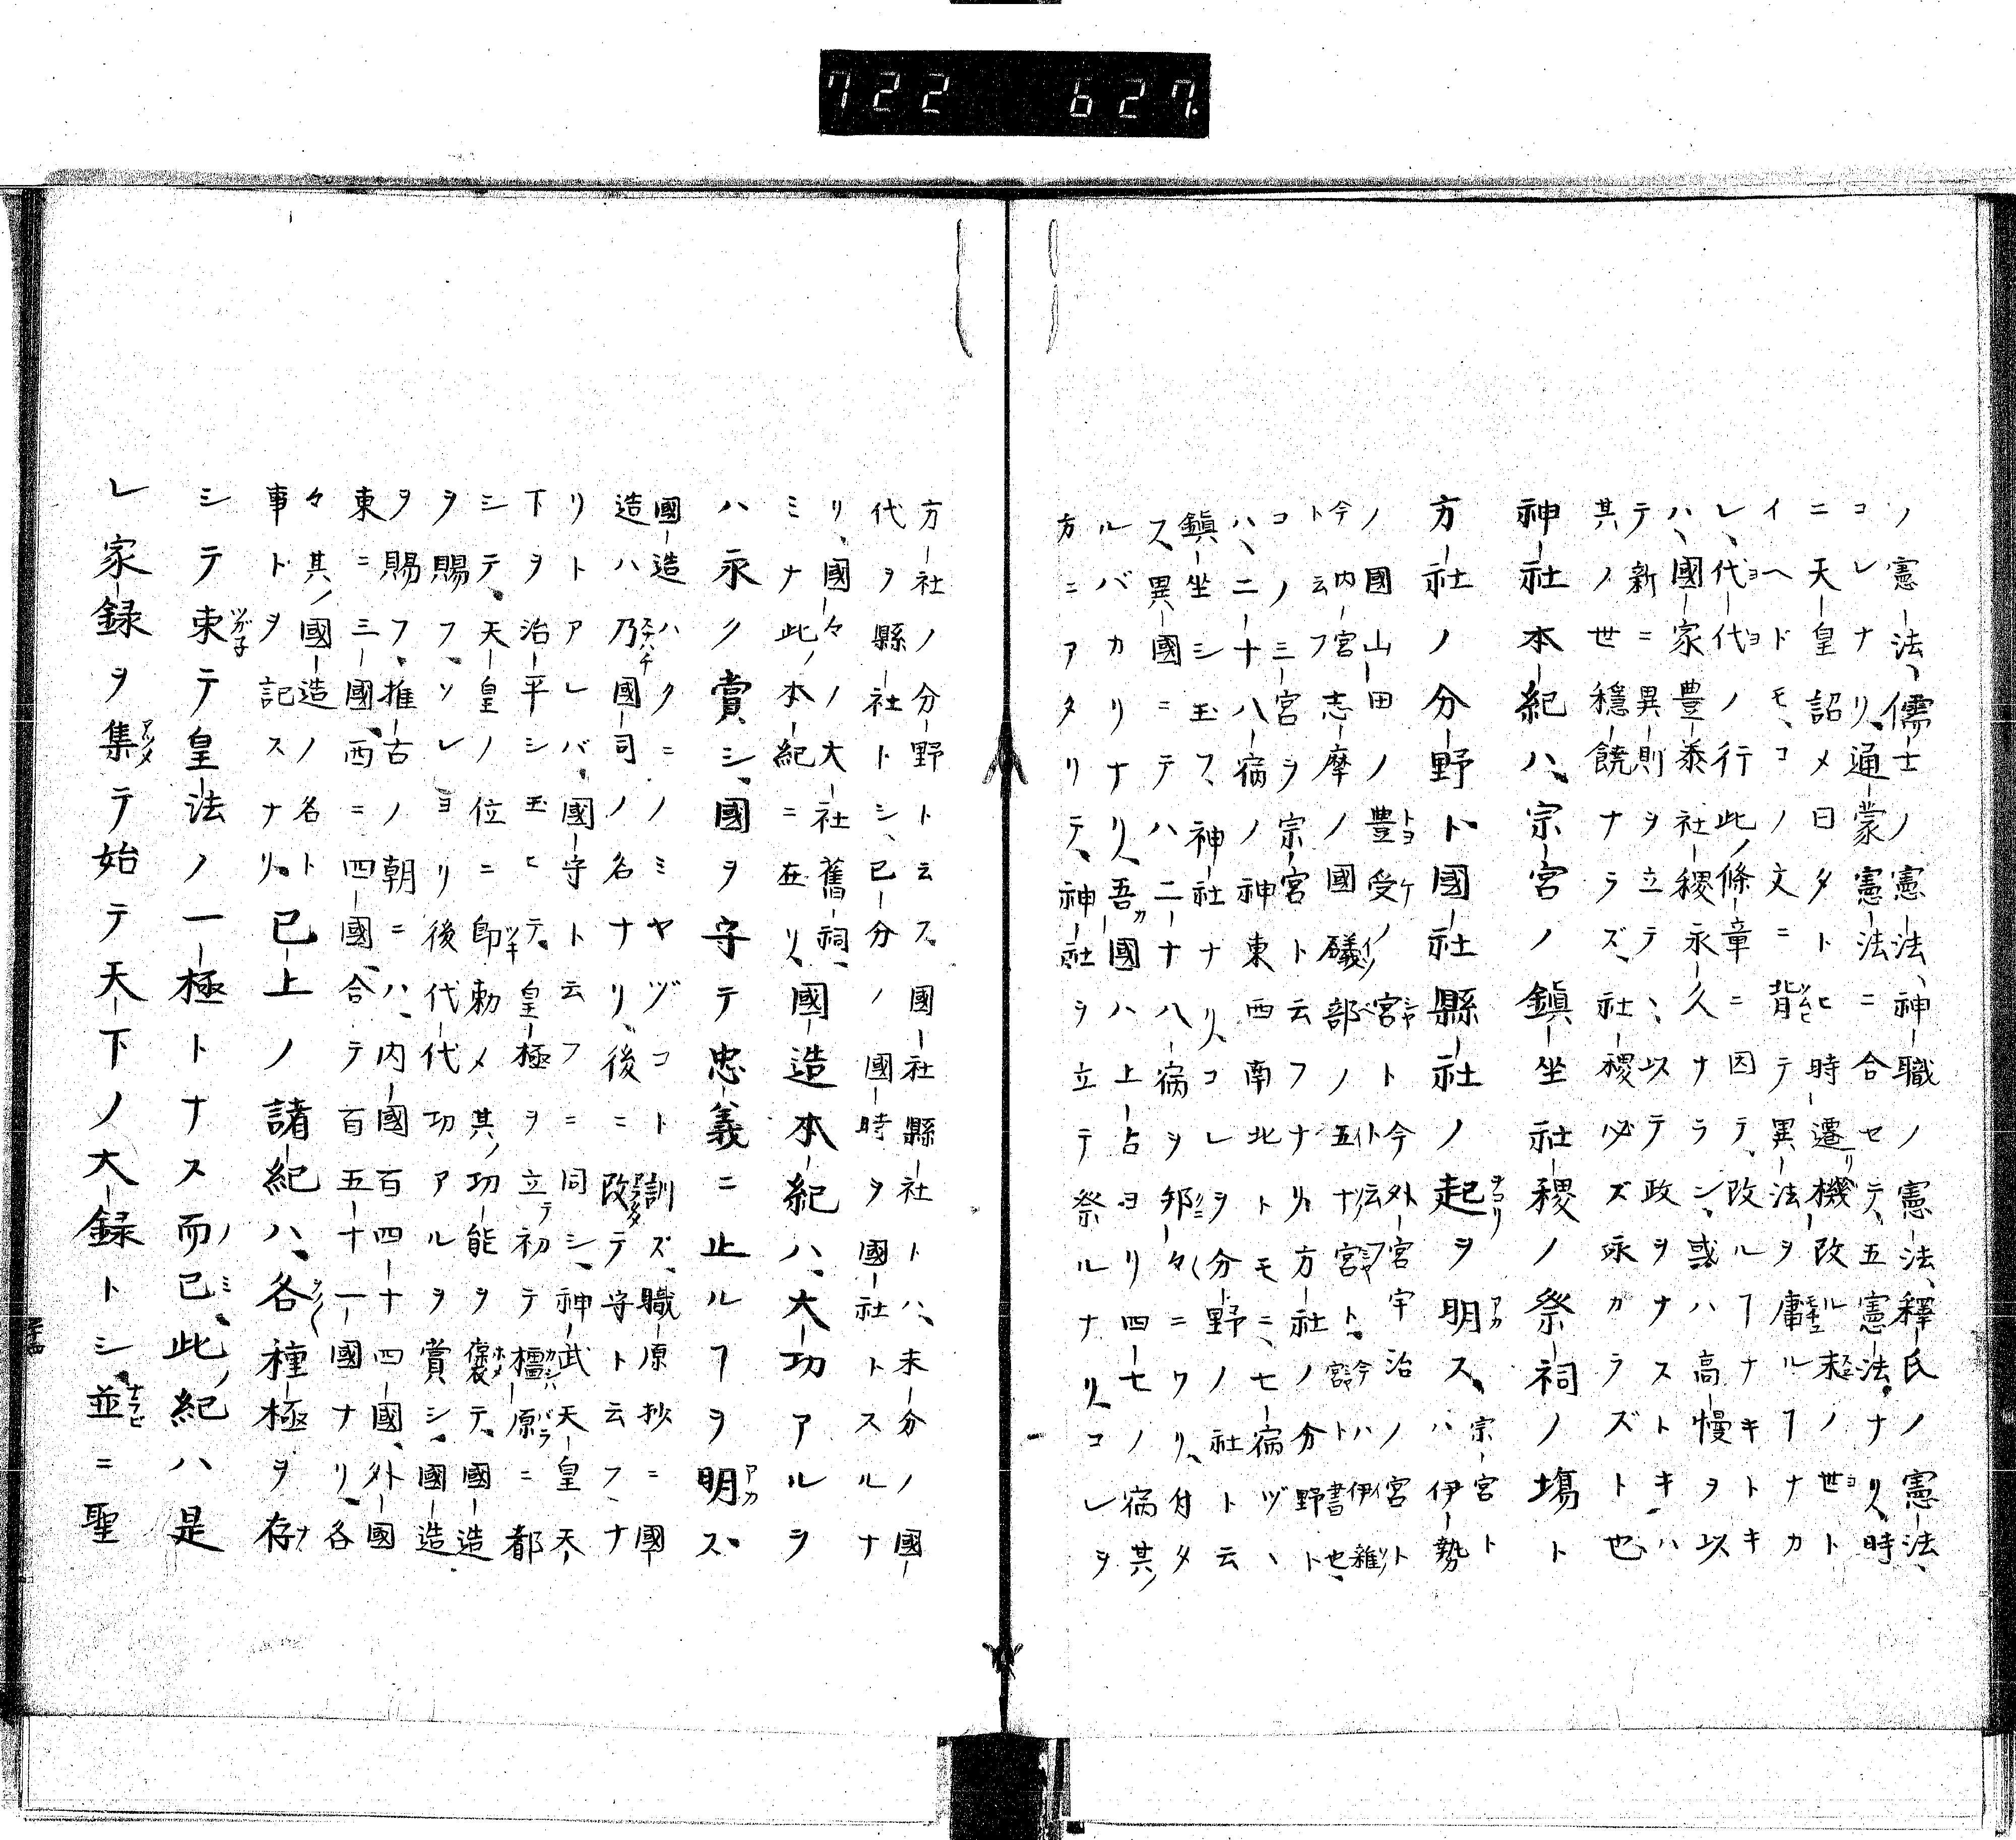 722 627.
ノ憲法、儒士ノ憲法、神職ノ憲法、釋氏ノ憲法、
コレナリ、通蒙憲法ニ合セテ、五憲法ナリ、時
ニ天皇詔メ曰タトヒ時遷リ機改ル末ノ世ト
イヘドモ、コノ文ニ背テ異法ヲ庸ルフナカ
レ、代代ノ行此條章ニ因テ、改ルフナキトキ
ハ、國家豊泰社稷永久ナラン、或ハ高慢ヲ以
テ新ニ異則ヲ立テ、以テ政ヲナストキハ、
其ノ世穩饒ナラズ、社稷必ズ永ガラズト也、
神社本紀ハ、宗宮ノ鎮坐社稷ノ祭祠ノ場ト
方社ノ分野ト國社縣社ノ起ヲ明ス、宗宮トハ伊勢
ノ國山田ノ豊受ノ宮ト今外宮ト云フ宇治ノ宮ト
今内宮ト云フ志摩ノ國礒部ノ五十宮ト今ハ伊雜宮ト書也、
コノ三宮ヲ宗宮ト云フナリ、方社ノ分野ト
ハ、二十八宿ノ神東西南北トモニ、七宿ヅヽ
鎮坐シ玉フ、神社ナリ、コレヲ分野ノ社ト云
ス、異國ニテハ二十八宿ヲ邦々ニワリ付タ
ルバカリナリ、吾國ハ上占ヨリ四七ノ宿其
方ニアタリテ、神社ヲ立テ祭ルナリ、コレヲ
方社ノ分野ト云ス、國社縣社トハ、末分ノ國
代ヲ縣社トシ、已分ノ國時ヲ國社トスルナ
リ、國々ノ大社舊祠、
ミナ此ノ本紀ニ在リ、國造本紀ハ、大功アルヲ
ハ永ク賞シ、國ヲ守テ忠義ニ止ルフヲ明ス、
國造ハクニノミヤヅコト訓ズ、職原抄ニ國
造ハ乃國司ノ名ナリ、後ニ改テ守ト云フ、ナ
リトアレバ、國守ト云フニ同シ、神武天皇天
下ヲ治平シ玉ヒテ、皇極ヲ立テ初テ橿原ニ都
シテ、天皇ノ位ニ即勅メ其功能ヲ褒テ、國造
ヲ賜フ、ソレヨリ後代代功アルヲ賞シ、國造
ヲ賜フ、推古ノ朝ニハ、内國百四十四國、外國
東ニ三國、西ニ四國、合テ百五十一國ナリ、各
々其ノ國造ノ名ト
事トヲ記スナリ、已上ノ諸紀ハ、各種極ヲ存
シテ束テ皇法ノ一極トナス而已、此紀ハ是
レ家録ヲ集テ始テ天下ノ大録トシ、並ニ聖